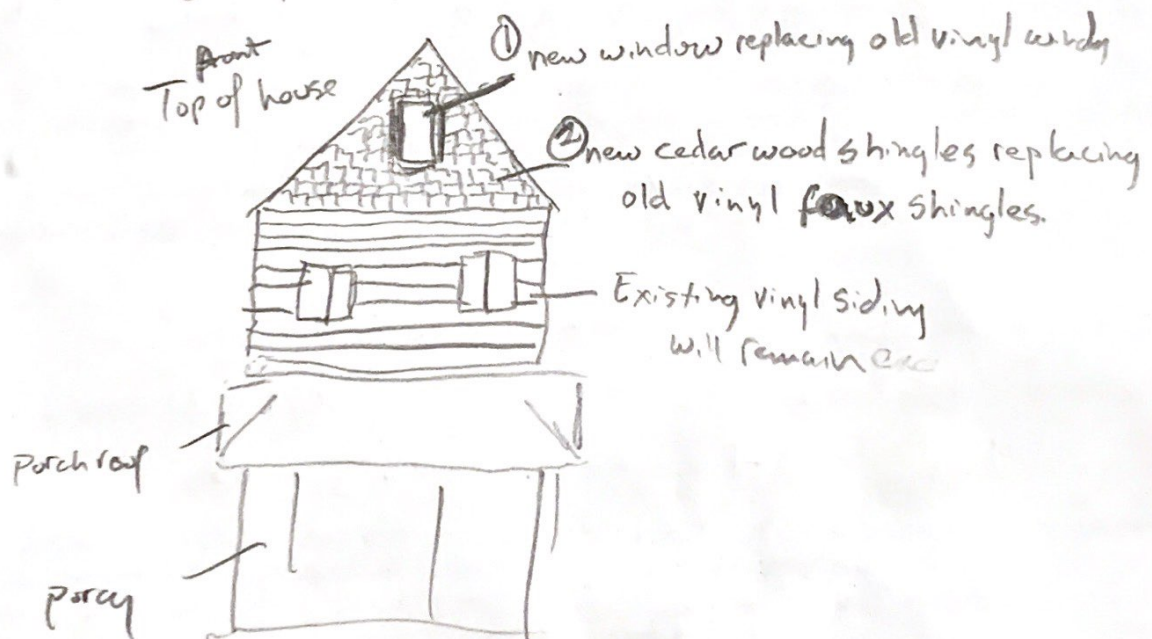 Front
Top of house
① new window replacing old vinyl windy
② new cedar wood shingles replacing
old vinyl faux shingles.
Existing vinyl siding
will remain
porch roof
porcy